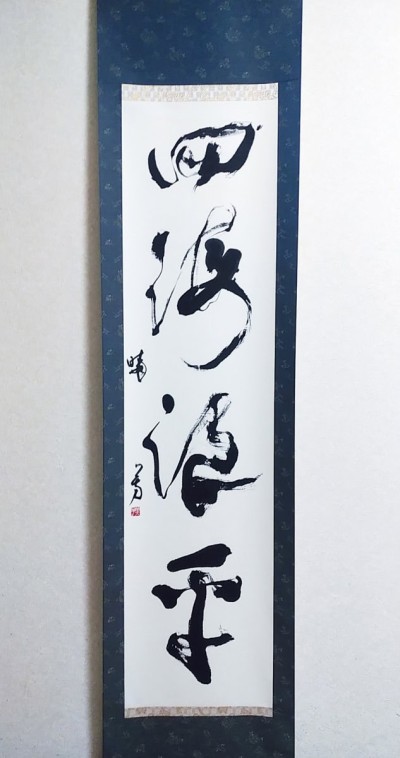 四海浪平